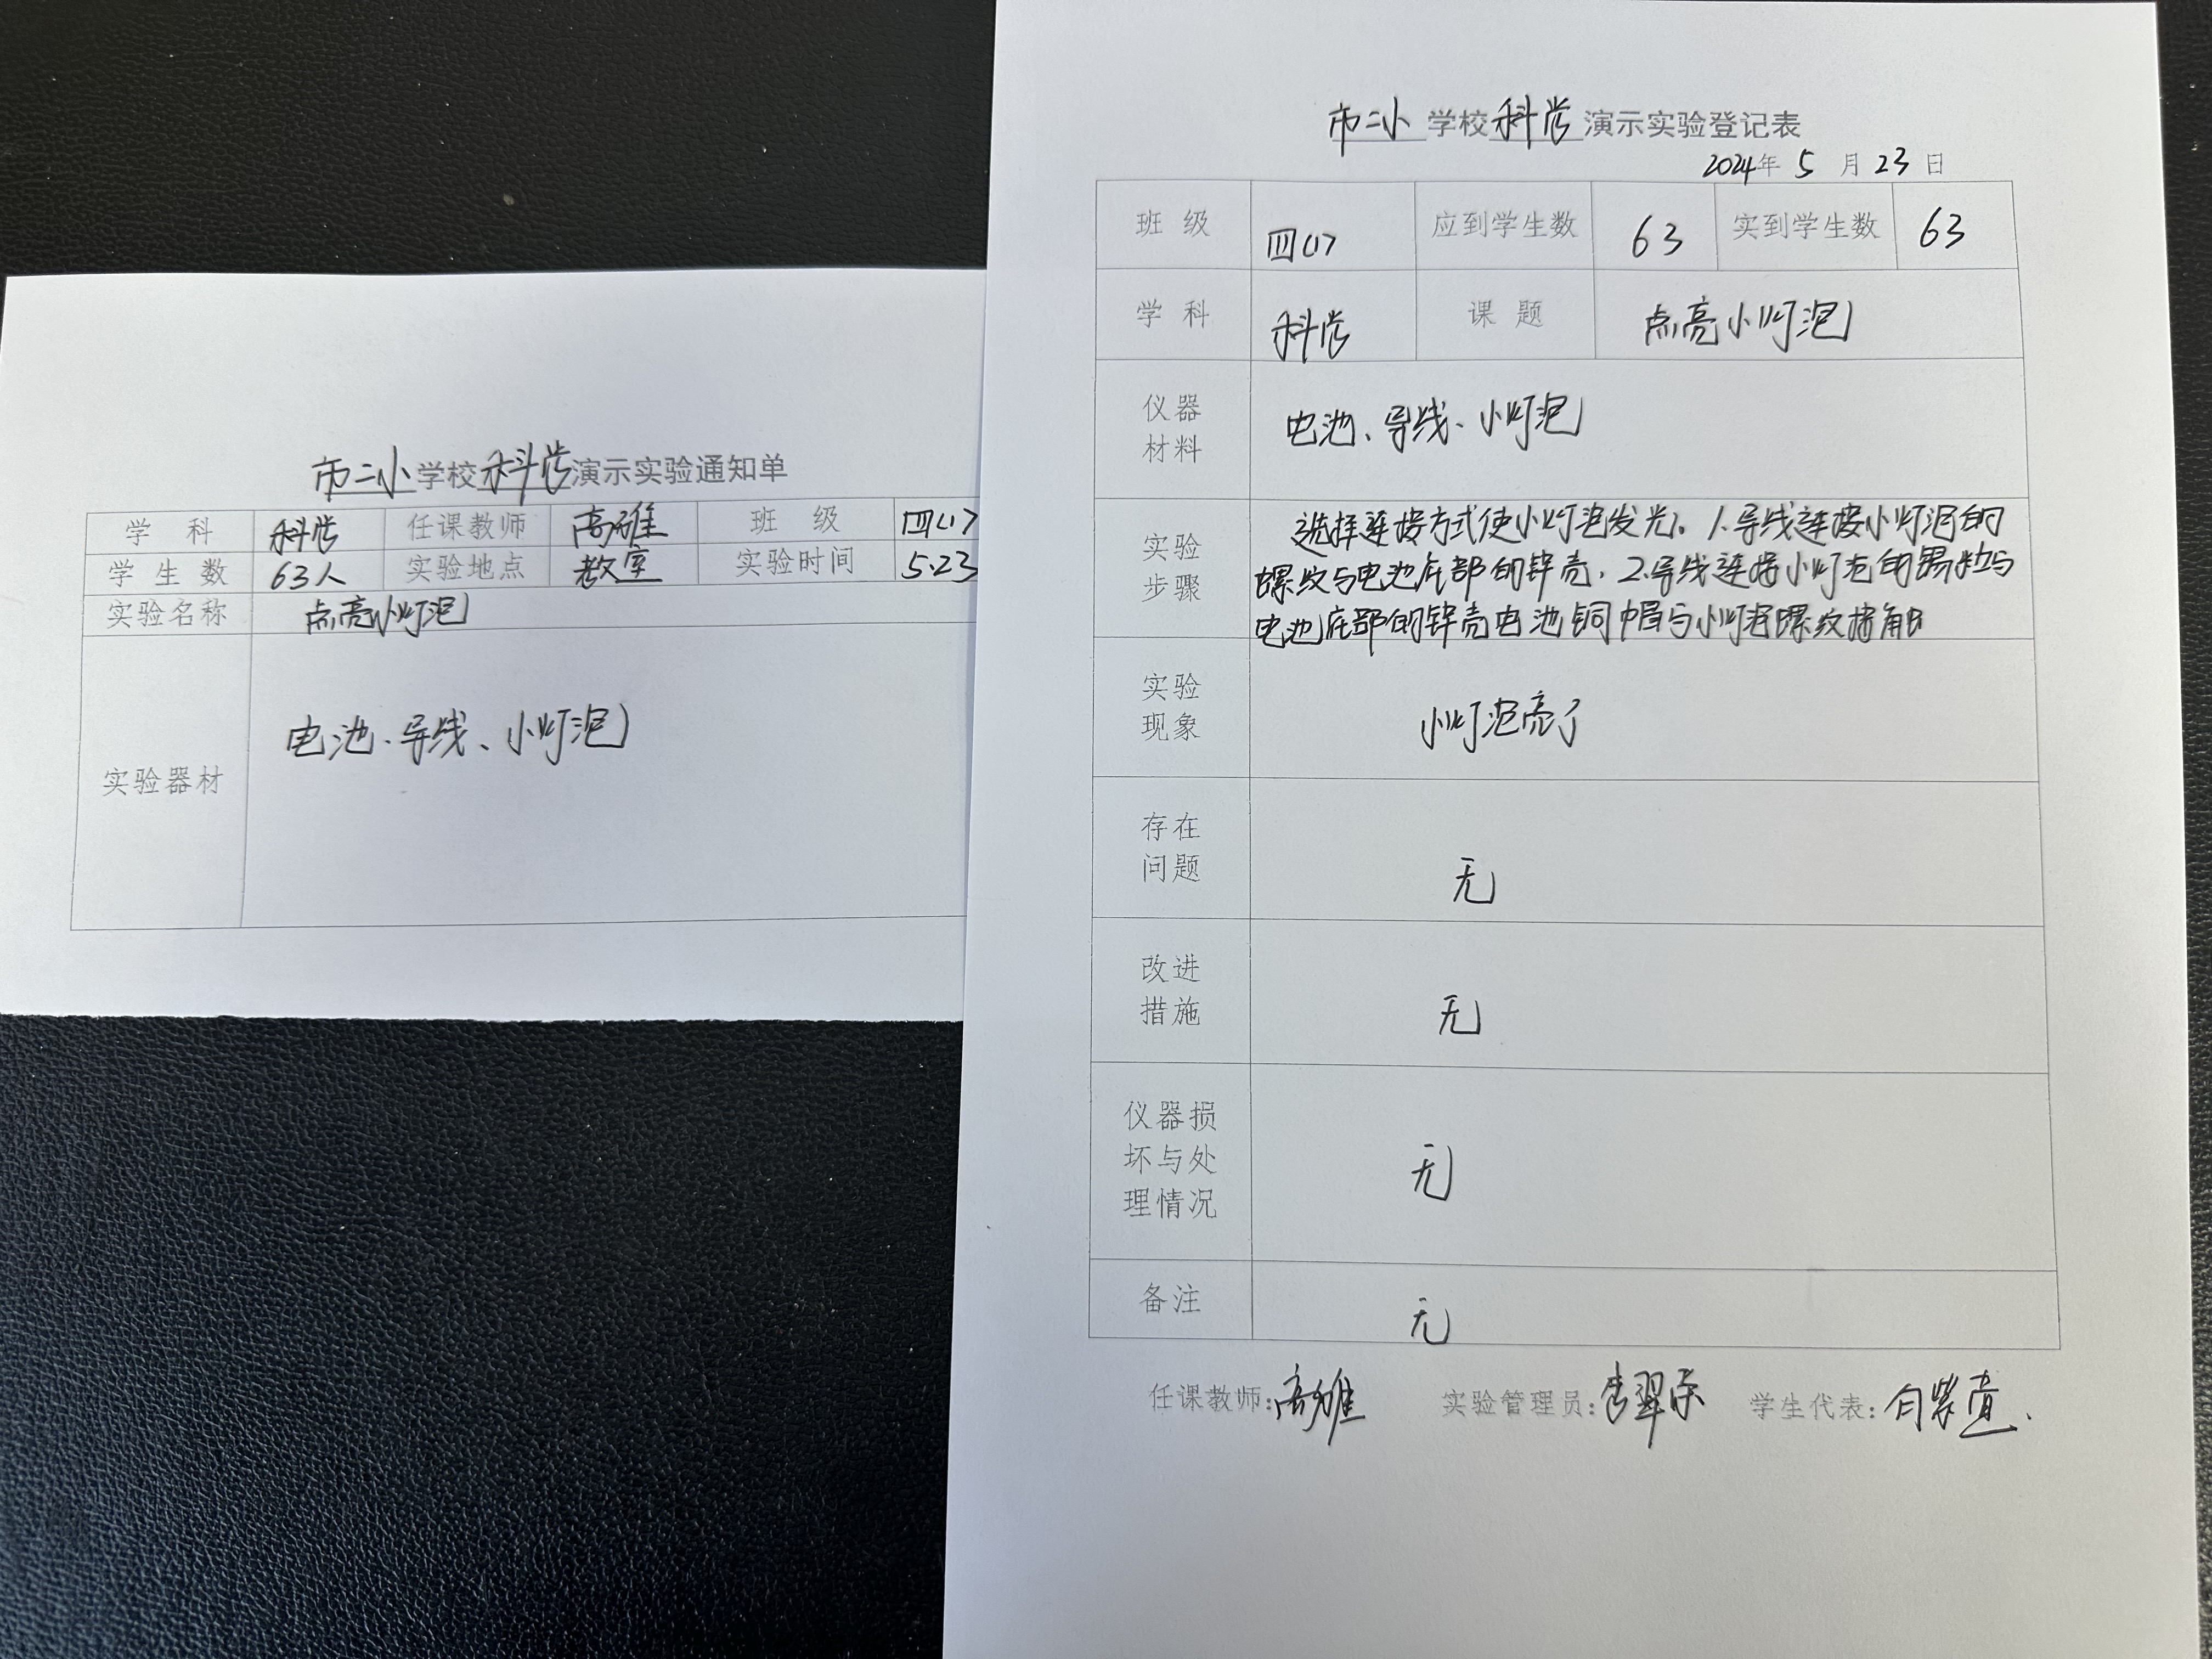 市二小学校科学演示实验通知单
学 科 科学 任课教师 高雅 班 级 四(1)
学生数 63人 实验地点 教室 实验时间 5.23
实验名称 点亮小灯泡
实验器材 电池、导线、小灯泡
市二小 学校科学演示实验登记表
2024年 5 月 23 日
班 级 四(1) 应到学生数 63 实到学生数 63
学 科 科学 课 题 点亮小灯泡
仪器
材料
电池、导线、小灯泡
实验
步骤
选择连接方式使小灯泡发光。1.导线连接小灯泡的
螺纹与电池底部的锌壳。2.导线连接小灯泡的锡粒与
电池底部的锌壳电池铜帽与小灯泡螺纹接触
实验
现象
小灯泡亮了
存在
问题
无
改进
措施
无
仪器损
坏与处
理情况
无
备注 无
任课教师:高雅 实验管理员: 学生代表: